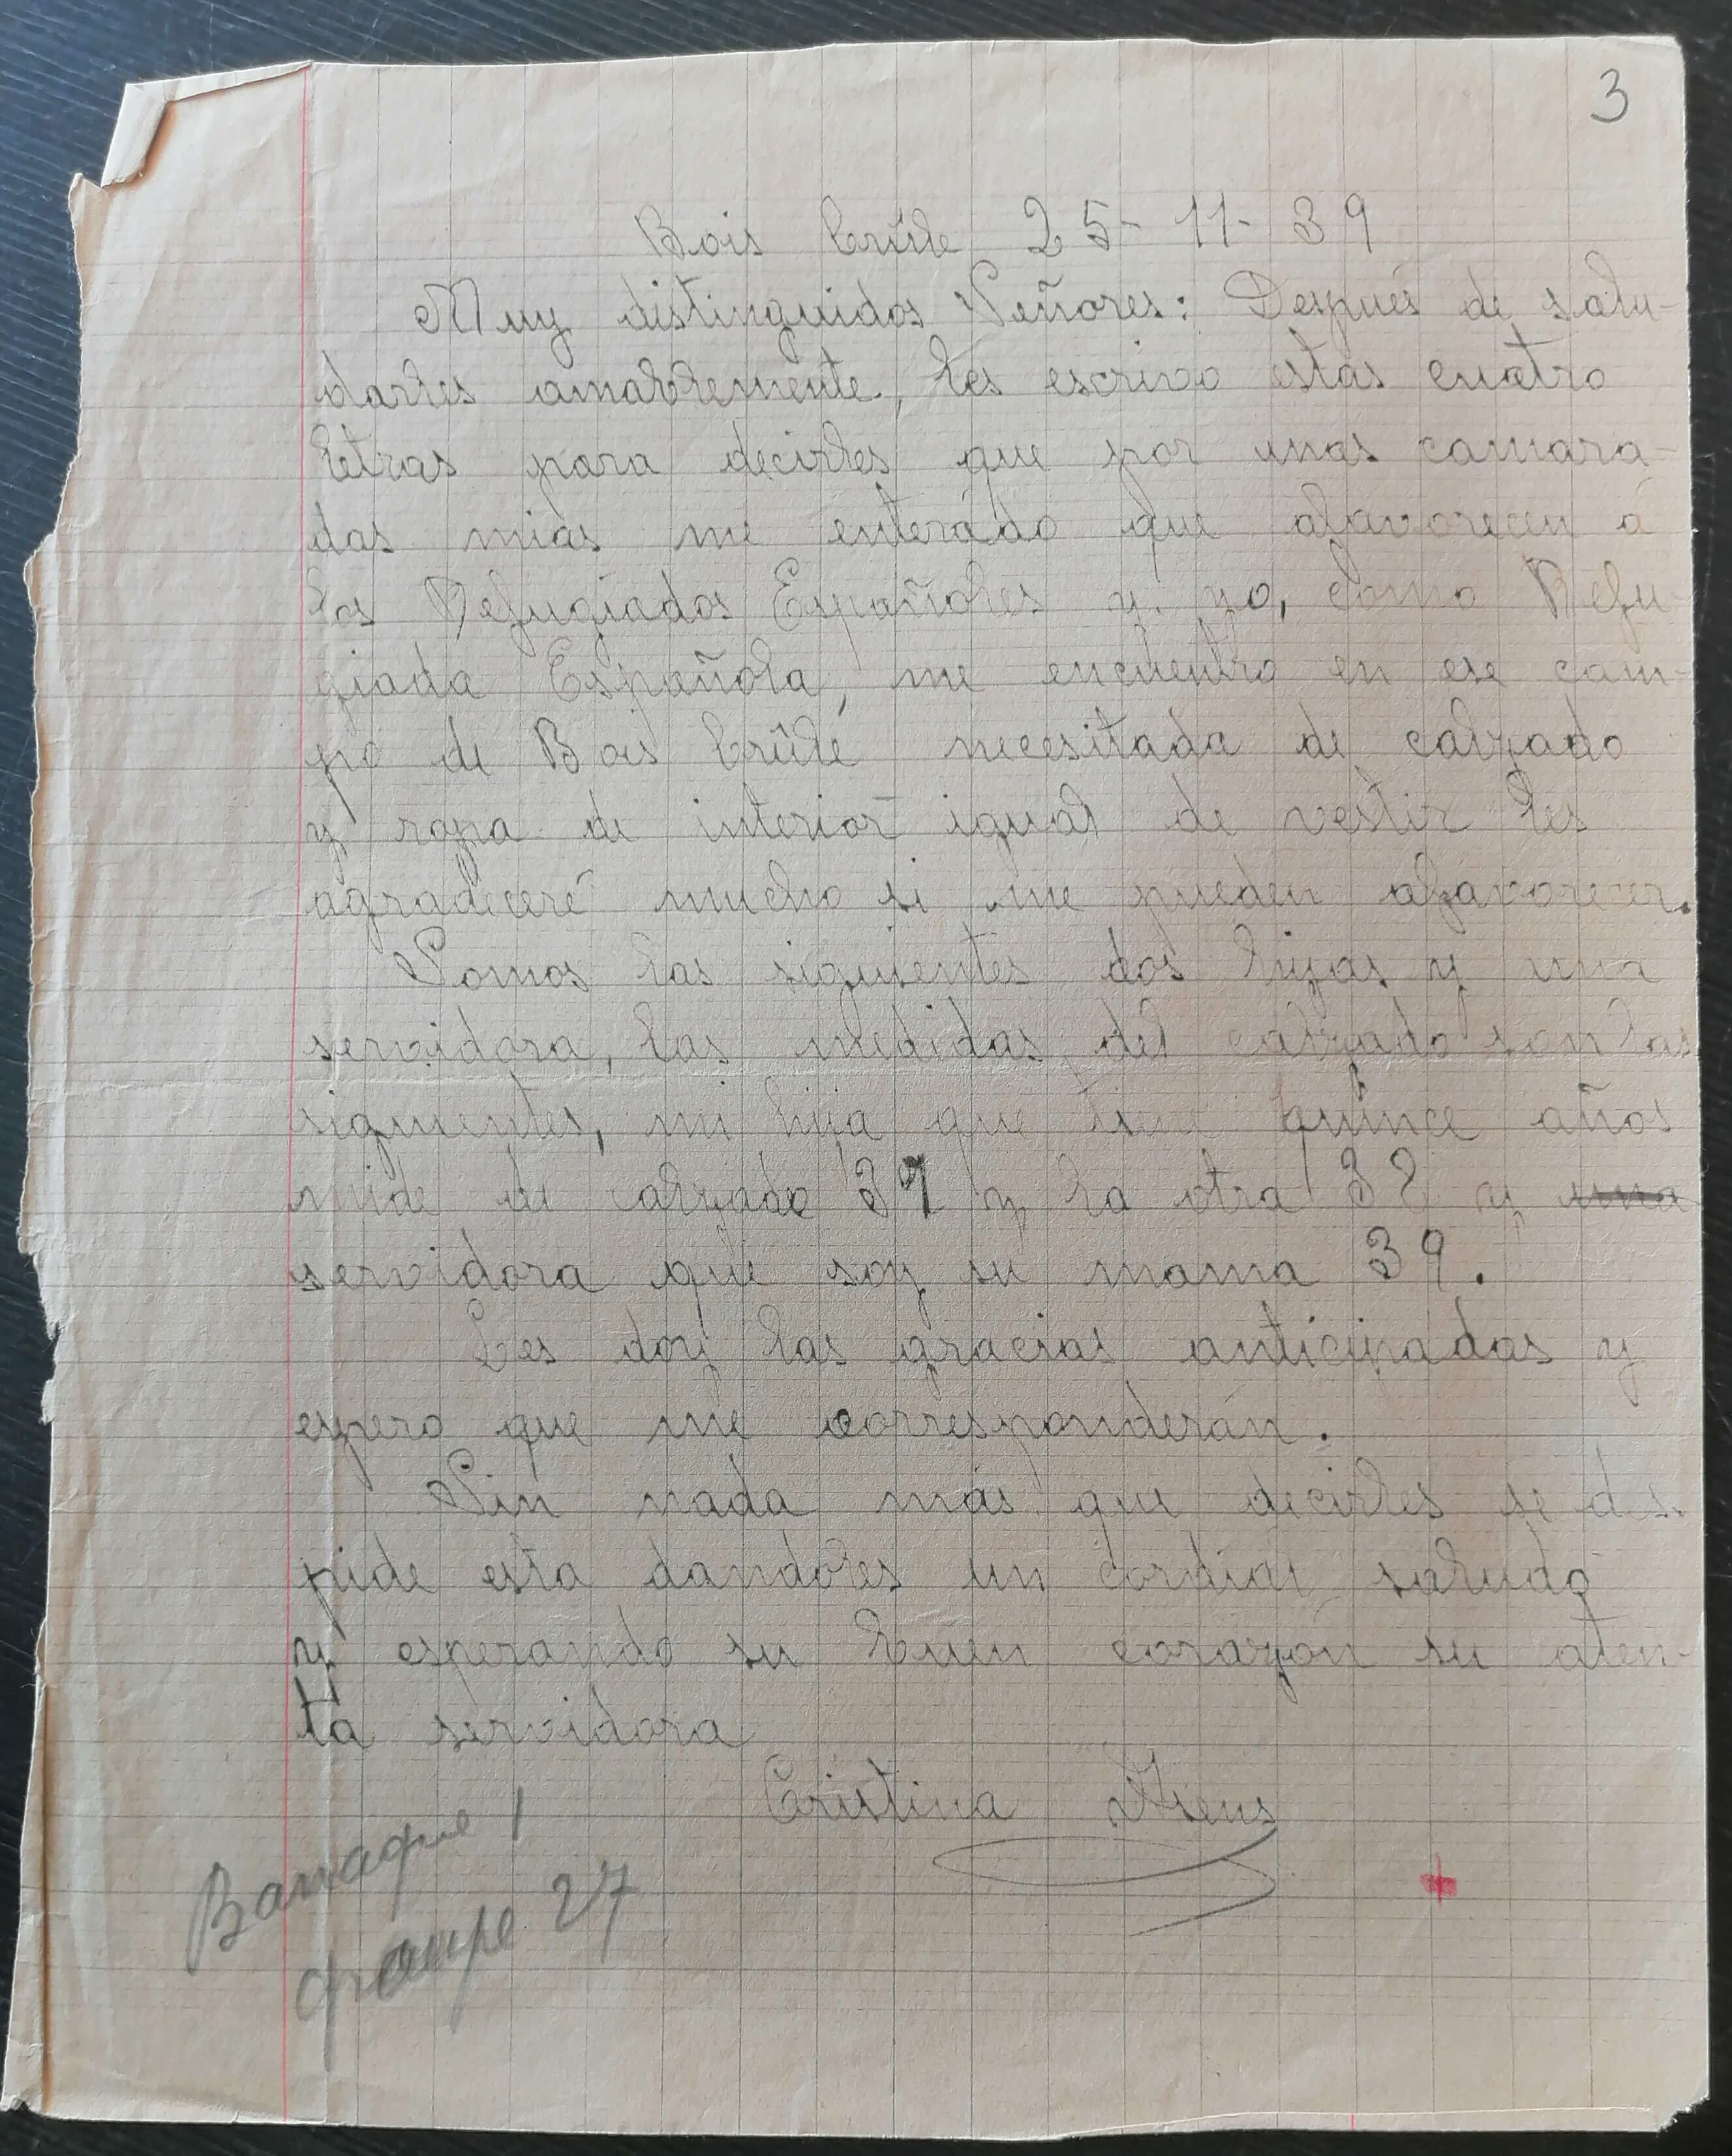 3
Bois brûle 25-11-39
Muy distinguidos Señores: Después de salu-
darles amablemente, les escrivo estas cuatro
letras para decirles que por unas camara-
das mias me enterádo que afavorecen á
los Refugiados Españoles y. yo, como Refu-
giada Española, me encuentro en ese cam-
po de Bois brûlé necesitada de calzado
y ropa de interior igual de vestir les
agradeceré mucho si me pueden afavorecer.
Somos las siguientes dos hijas y una
servidora, las medidas del calzado son las
siguientes, mi hija que tiene quince años
mide de calzado 37 y la otra 38 y una
servidora que soy su mama 39.
Les doy las gracias anticipadas y
espero que me corresponderán.
Sin nada más que decirles se des-
pide esta dandoles un cordial saludo
y esperando su buen corazón su aten-
ta servidora
Cristina
Barraque 1
groupe 27